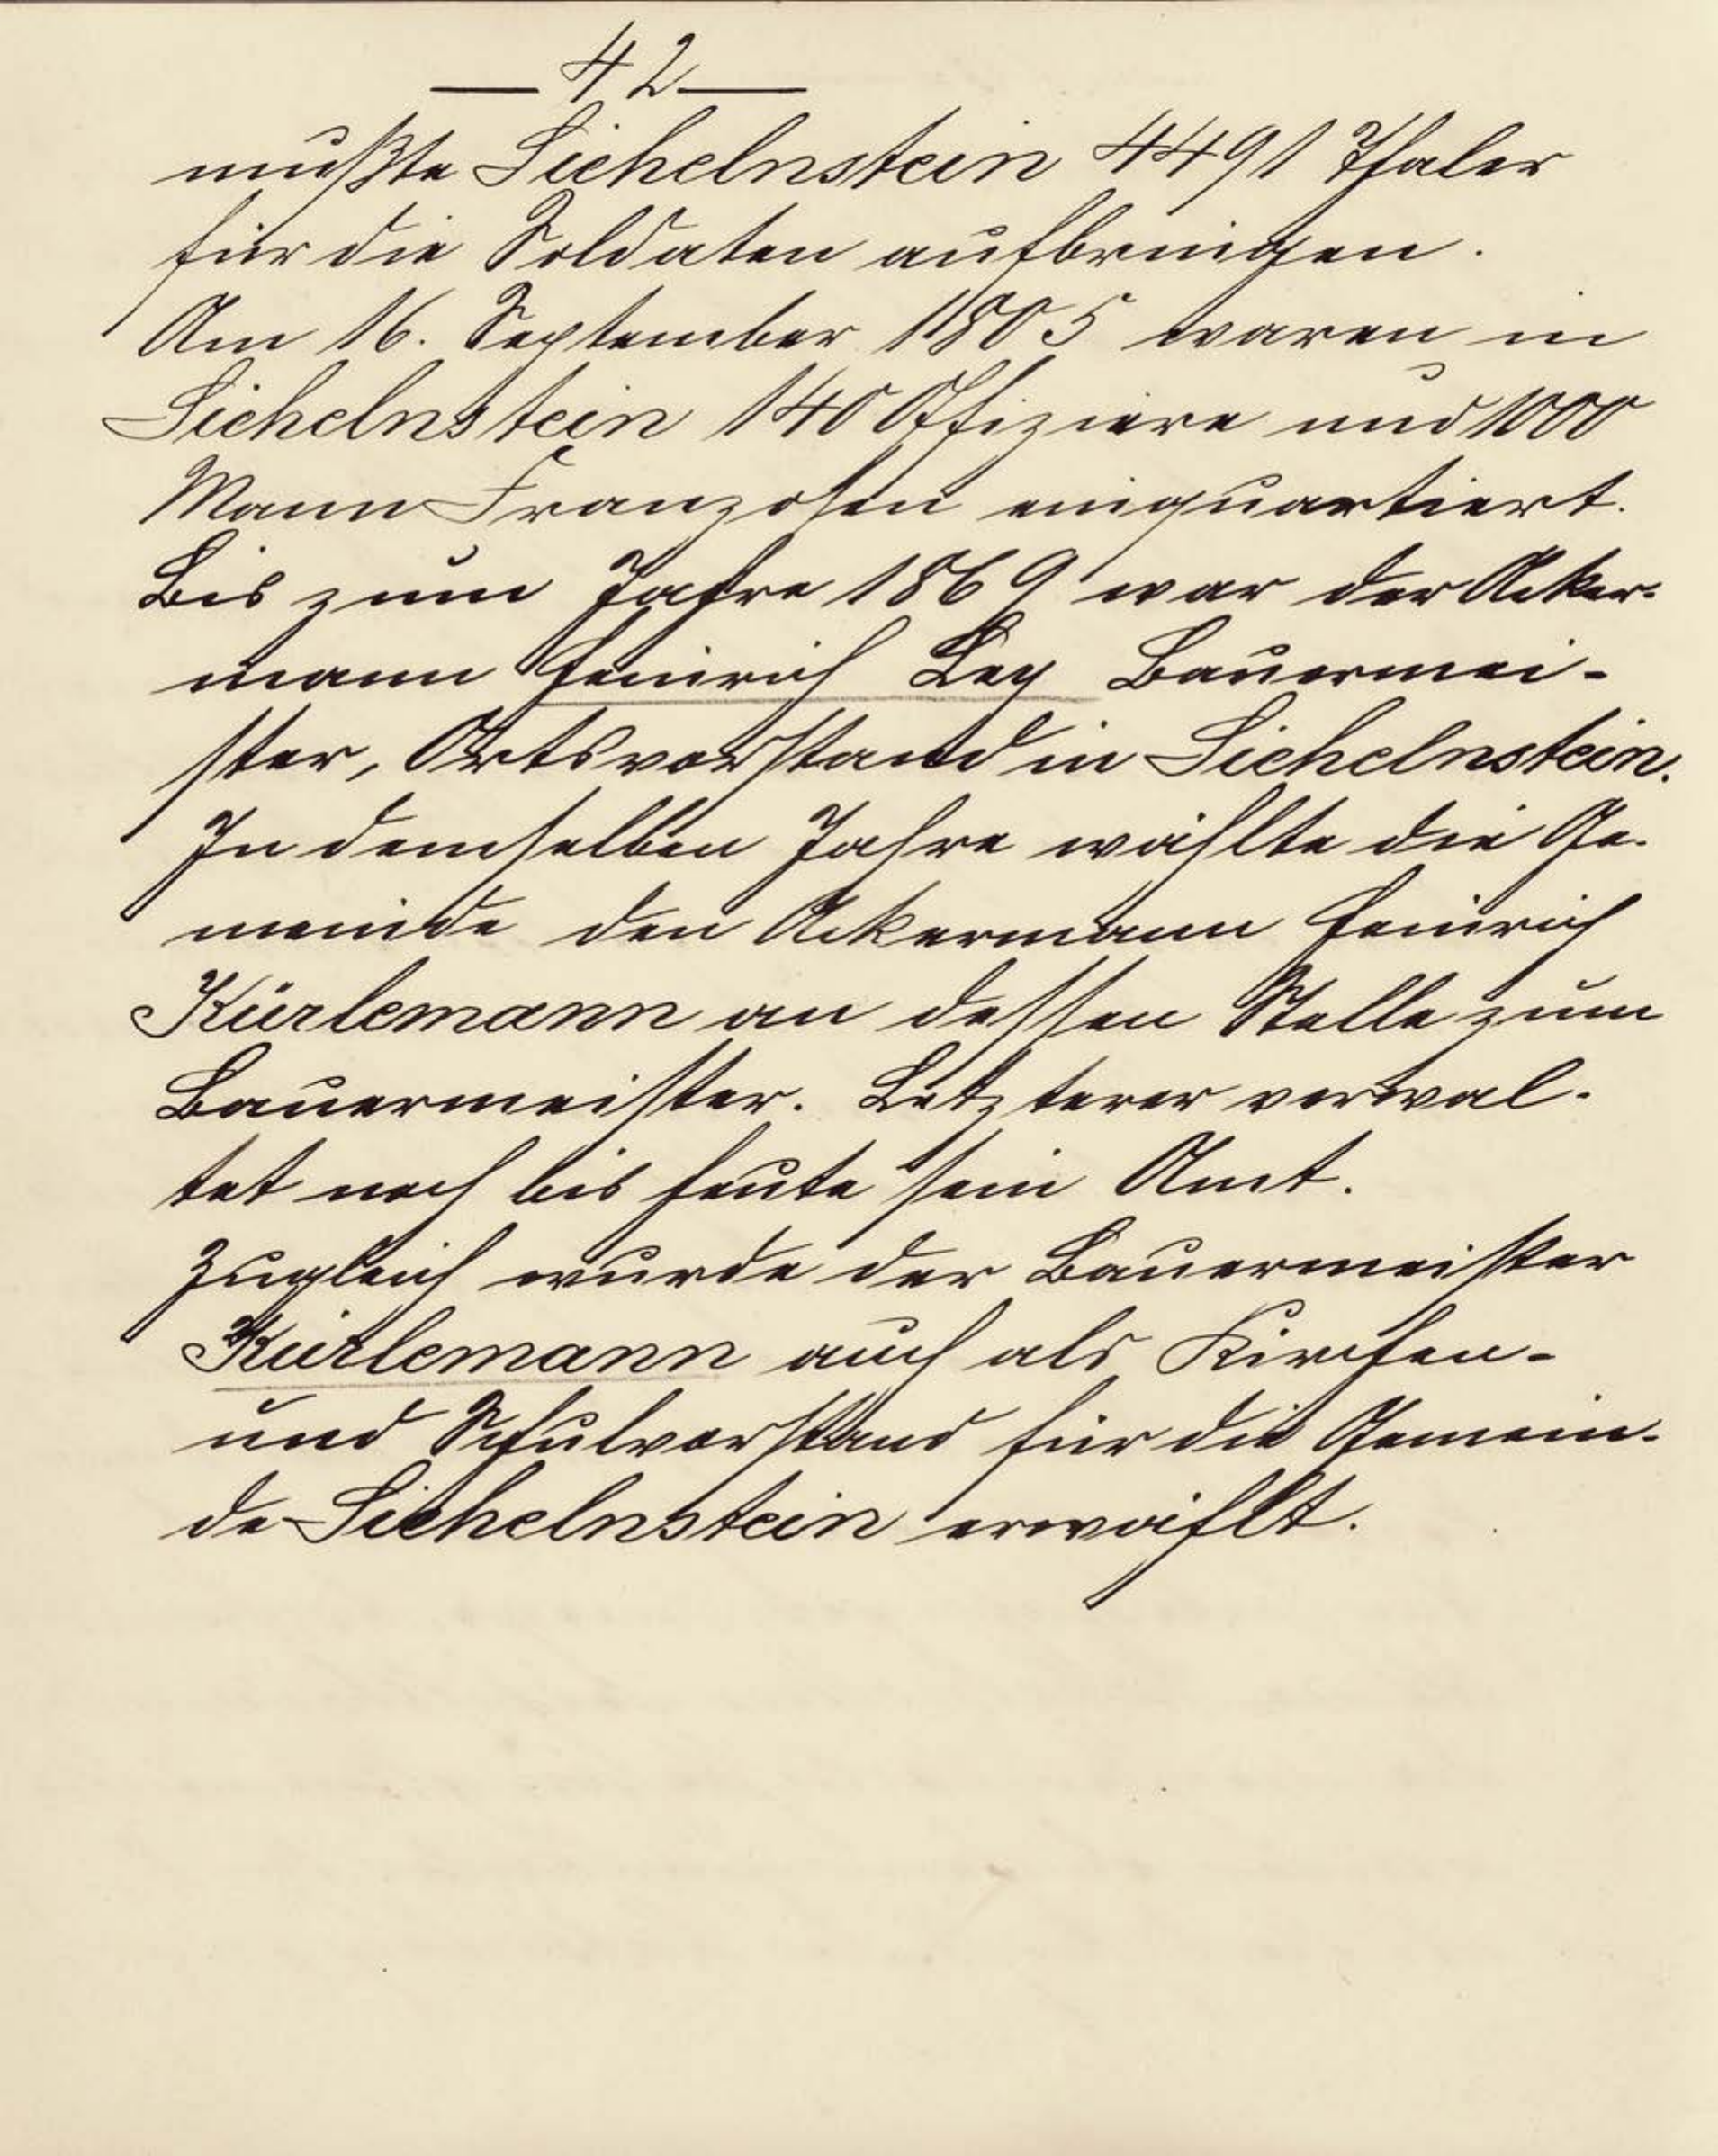 — 42 —
mußte Sichelnstein 4491 Thaler
für die Soldaten aufbringen.
Am 16. September 1805 waren in
Sichelnstein 140 Offiziere und 1000
Mann Franzosen einquartiert.
Bis zum Jahre 1869 war der Acker-
mann Heinrich Ley Bauermei-
ster, Ortsvorstand in Sichelnstein.
In demselben Jahre wählte die Ge-
meinde den Ackermann Heinrich
Kürlemann an dessen Stelle zum
Bauermeister. Letzterer verwal-
tet noch bis heute sein Amt.
Zugleich wurde der Bauermeister
Kürlemann auch als Kirchen-
und Schulvorstand für die Gemein-
de Sichelnstein erwählt.